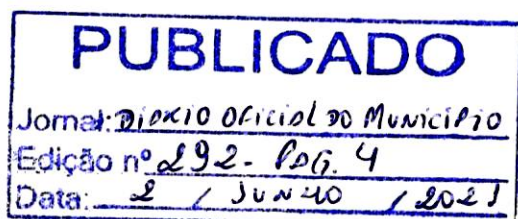 PUBLICADO
Jornal: DIÁRIO OFICIAL DO MUNICÍPIO
Edição nº 292 - PÁG. 4
Data: 2 / JUNHO / 2021